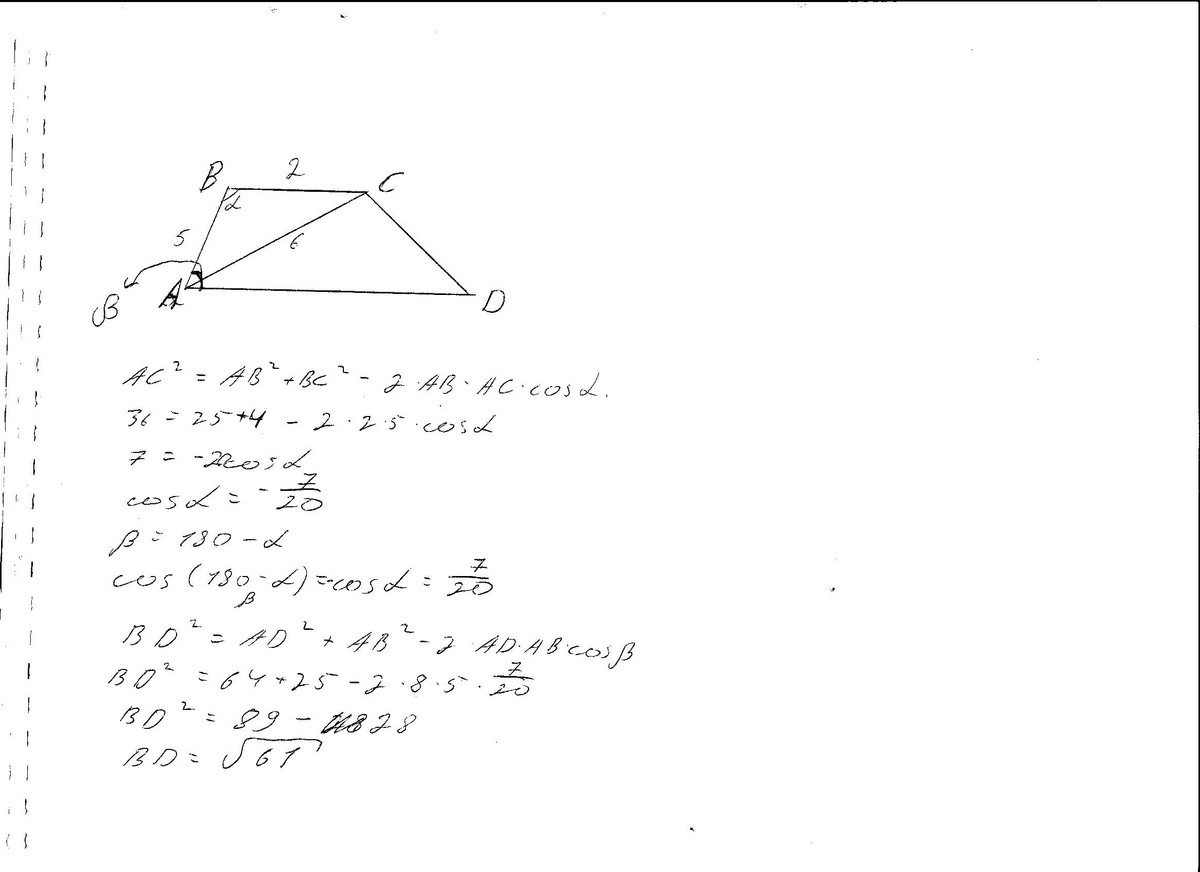 B 2 C
α
5 6
β A D
AC² = AB² + BC² - 2 · AB · AC · cosα.
36 = 25+4 - 2 · 2 · 5 · cosα
7 = -20cosα
cosα = - 7/20
β = 180 - α
cos (180 - α) = -cosα = 7/20
β
BD² = AD² + AB² - 2 · AD · AB · cosβ
BD² = 64 + 25 - 2 · 8 · 5 · 7/20
BD² = 89 - 28
BD = √61